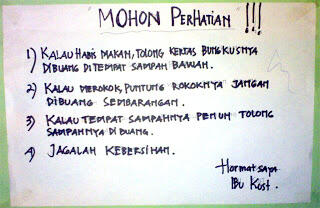 "MOHON PERHATIAN" !!!
1) KALAU HABIS MAKAN, TOLONG KERTAS BUNGKUSNYA
DIBUANG DI TEMPAT SAMPAH BAWAH.
2) KALAU MEROKOK, PUNTUNG ROKOKNYA JANGAN
DIBUANG SEMBARANGAN.
3) KALAU TEMPAT SAMPAHNYA PENUH TOLONG
SAMPAHNYA DI BUANG.
4) JAGALAH KEBERSIHAN.
Hormat saya
IBU KOST.